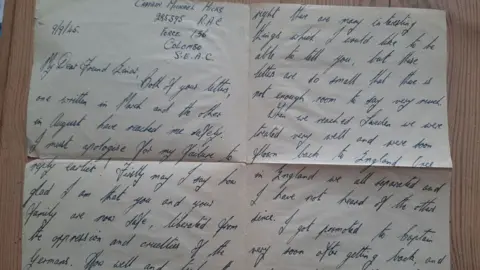 9/9/45.
R.A.C
Force 136
Colombo
S.E.A.C.
My Dear Friend
Both of your letters,
one written in March and the other
in August have reached me safely.
I must apologise for my failure to
reply earlier! Firstly may I say how
glad I am that you and your
family are now safe, liberated from
the oppression and cruelties of the
Germans. How well and
right there are many interesting
things which I would like to be
able to tell you, but these
letters are so small that there is
not enough room to say very much.
When we reached Sweden we were
treated very well and were soon
flown back to England. Once
in England we all separated and
I have not heard of the others
since. I got promoted to Captain
very soon after getting back, and